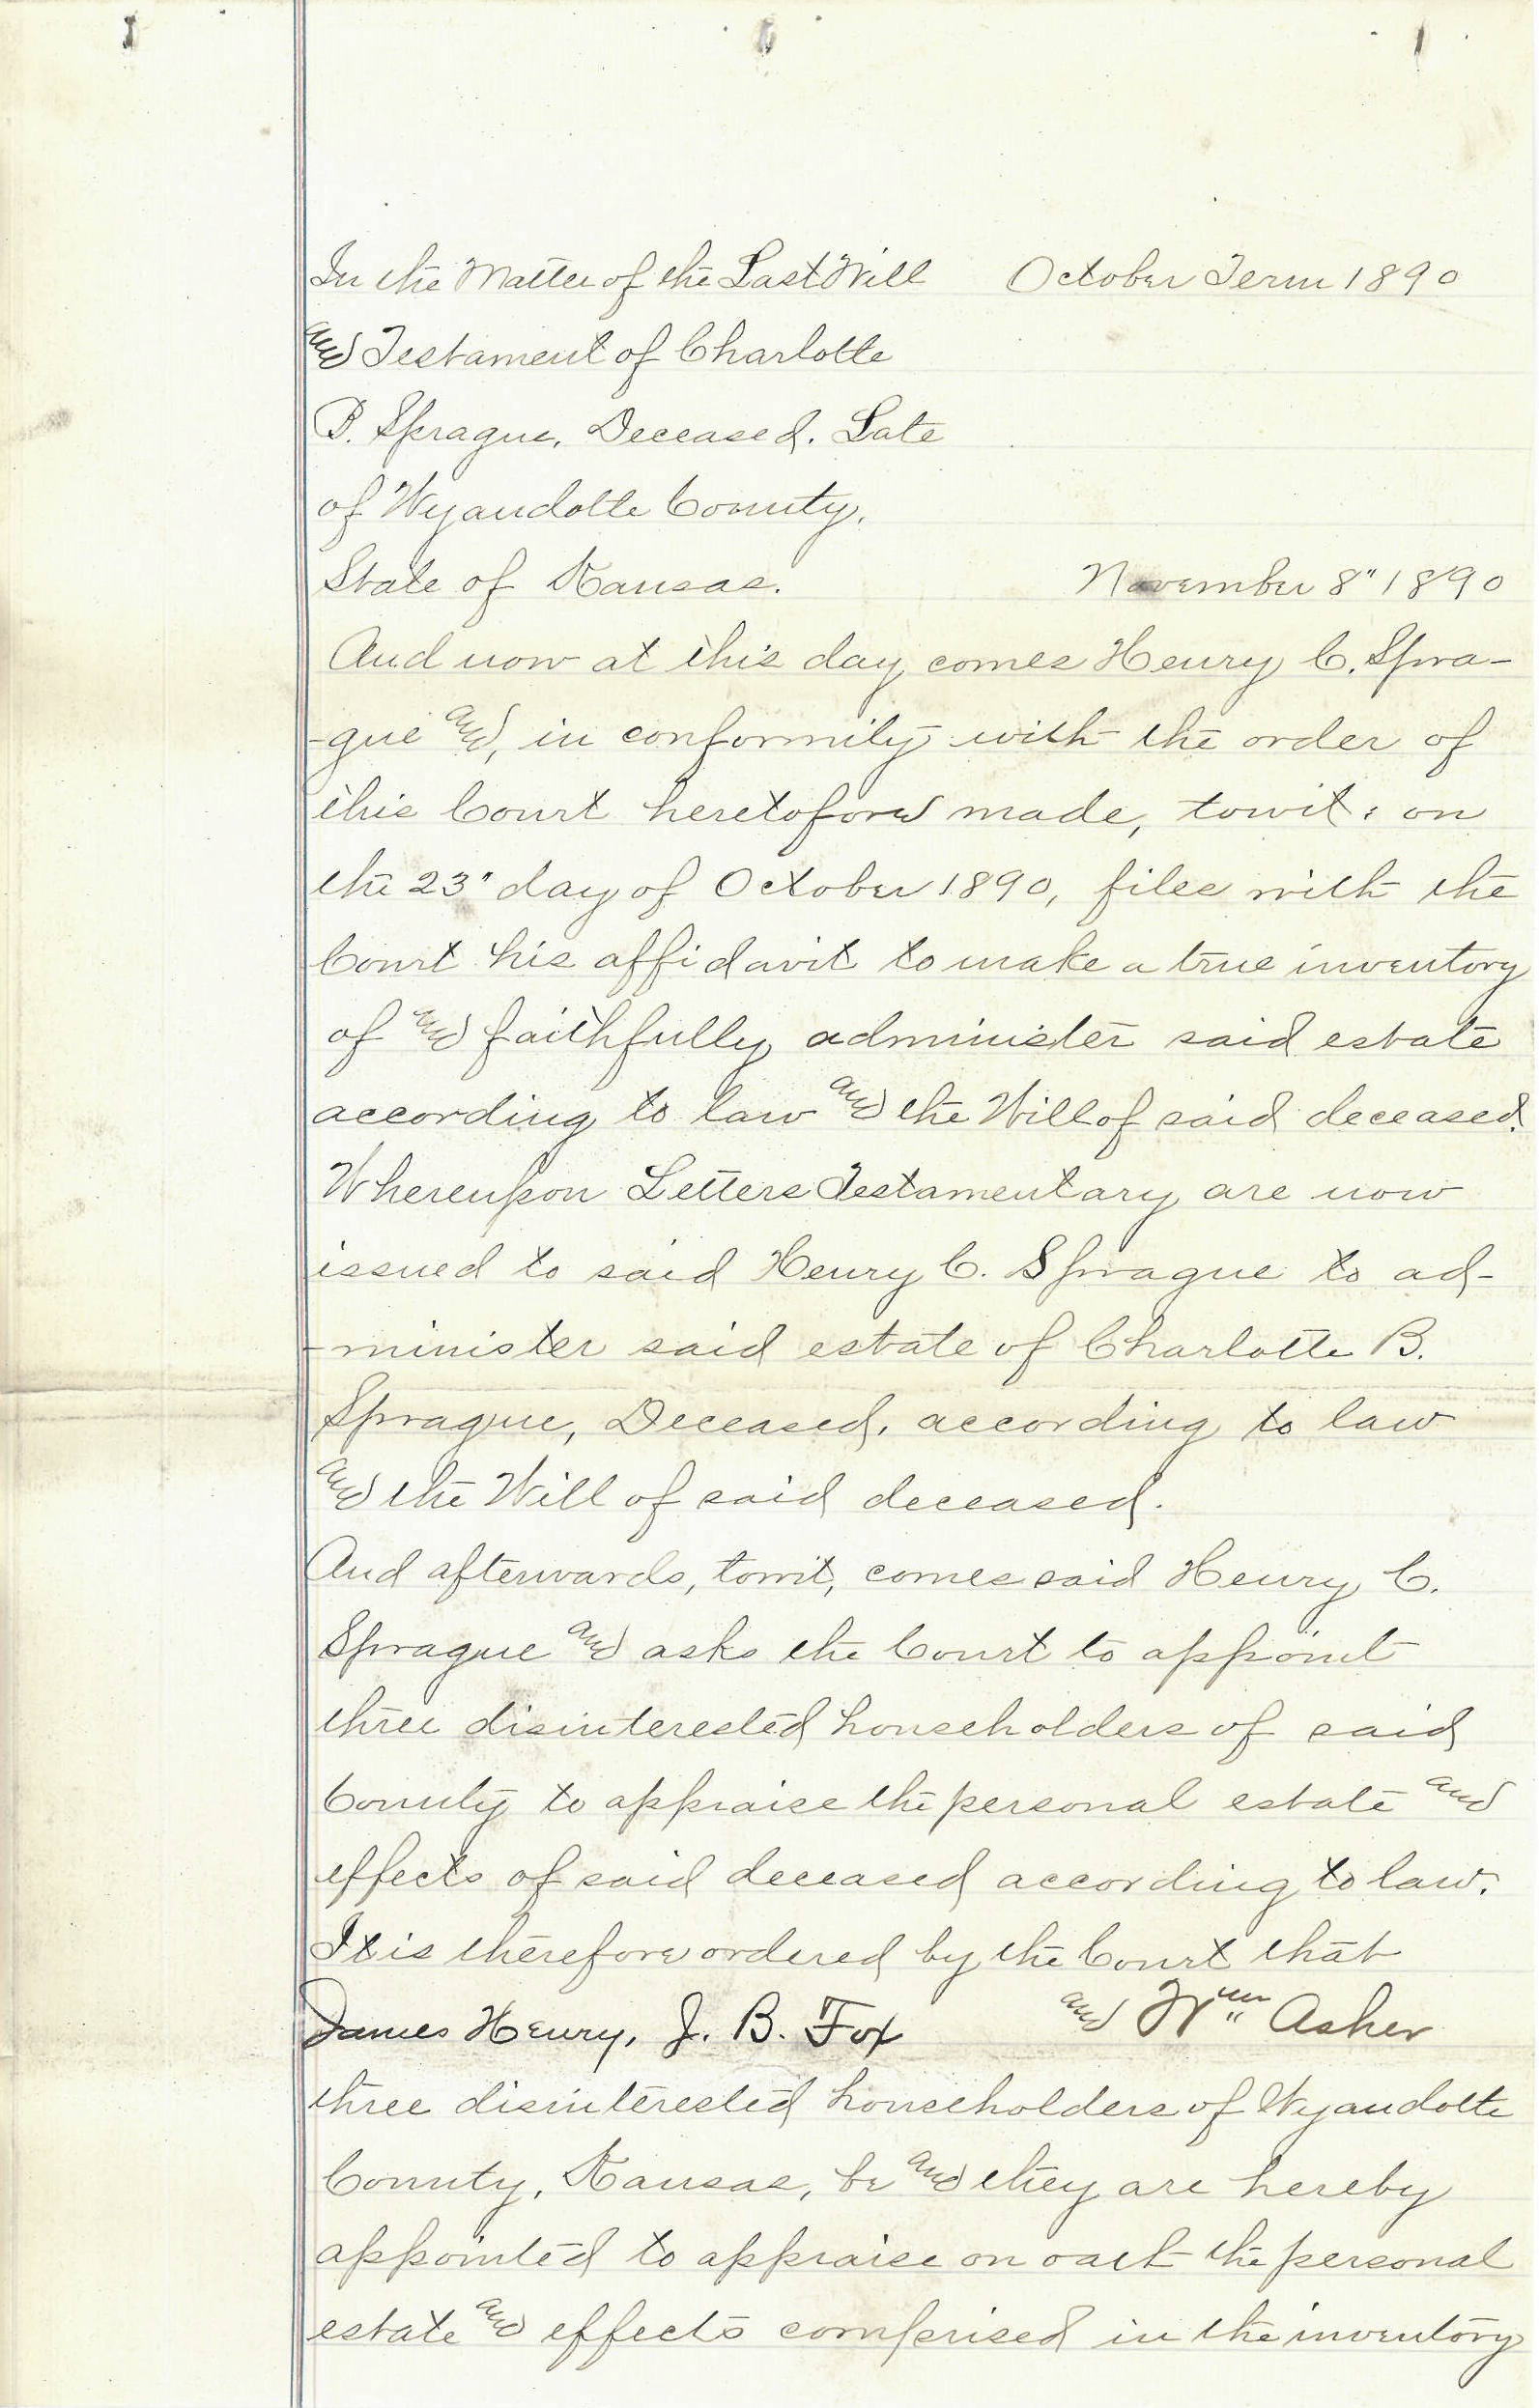 In the Matter of the Last Will October Term 1890
and Testament of Charlotte
B. Sprague, Deceased. Late
of Wyandotte County,
State of Kansas.
November 8" 1890
And now at this day comes Henry C. Spra-
-gue and, in conformity with the order of
this Court heretofore made, towit: on
the 23" day of October 1890, files with the
Court his affidavit to make a true inventory
of and faithfully administer said estate
according to law and the Will of said deceased.
Whereupon Letters Testamentary are now
issued to said Henry C. Sprague to ad-
-minister said estate of Charlotte B.
Sprague, Deceased, according to law
and the Will of said deceased.
And afterwards, towit, comes said Henry C.
Sprague and asks the Court to appoint
three disinterested householders of said
County to appraise the personal estate and
effects of said deceased according to law.
It is therefore ordered by the Court that
James Henry, J. B. Fox and Wm Asher
three disinterested householders of Wyandotte
County, Kansas, be and they are hereby
appointed to appraise on oath the personal
estate and effects comprised in the inventory